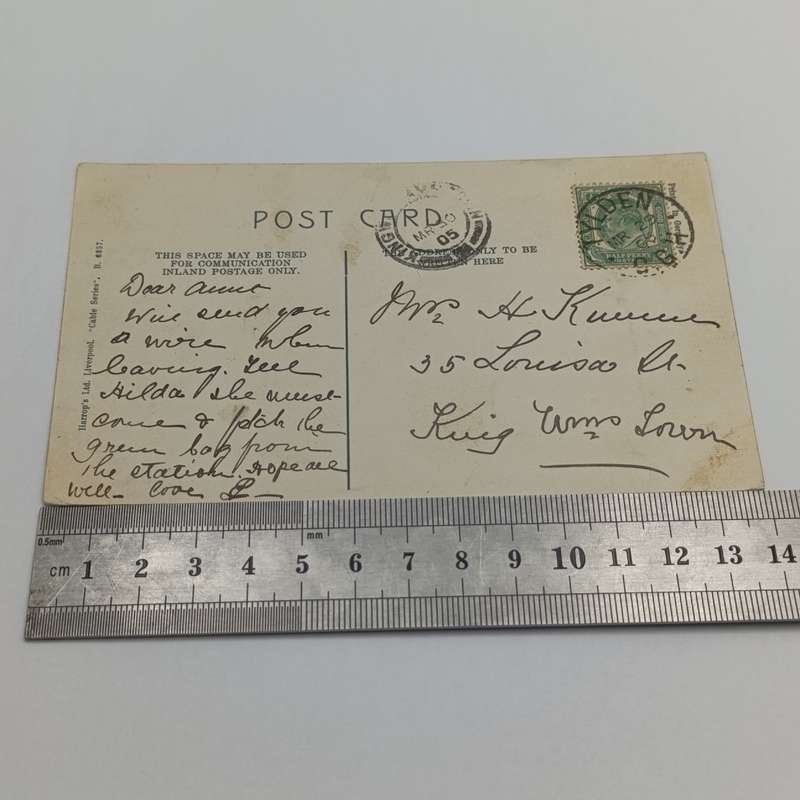 POST CARD
THIS SPACE MAY BE USED
FOR COMMUNICATION
INLAND POSTAGE ONLY.
THE ADDRESS ONLY TO BE
WRITTEN HERE
Harrop's Ltd. Liverpool. "Cable Series". B. 6857.
MR 30
05
KING
TYLDEN
MR
C.G.H.
HALF PENNY
Dear Anne
Will send you
a wire when
leaving. Tell
Hilda she must
come & fetch the
green bag from
the station. Hope all
well- love
Mrs H
35 Louisa St.
King Wms Town
0.5mm
mm
cm 1 2 3 4 5 6 7 8 9 10 11 12 13 14